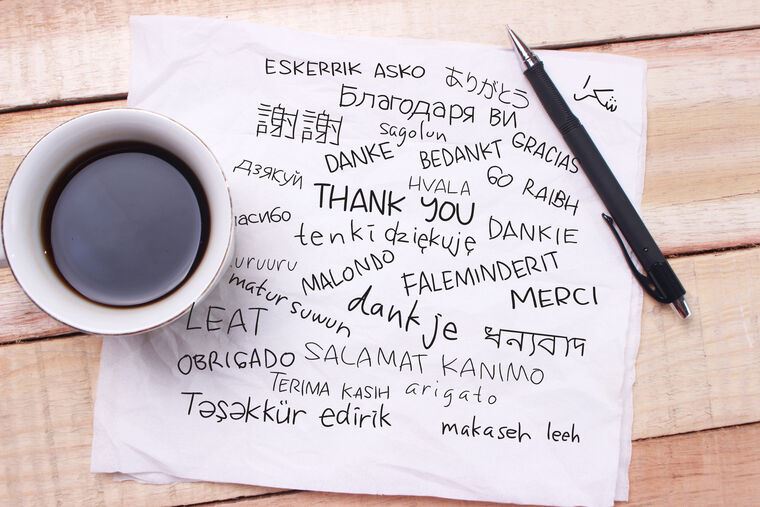 ESKERRIK ASKO
ありがとう
شكرا
Благодаря ви
謝謝
sagolun
DANKE
BEDANKT
GRACIAS
дзякуй
HVALA
GO RAIBH
THANK YOU
асибо
tenki
dziękuję
DANKIE
uruuru
MALONDO
FALEMINDERIT
matur suwun
dank je
MERCI
LEAT
ধন্যবাদ
OBRIGADO
SALAMAT KANIMO
TERIMA KASIH
arigato
Təşəkkür edirik
makaseh leeh